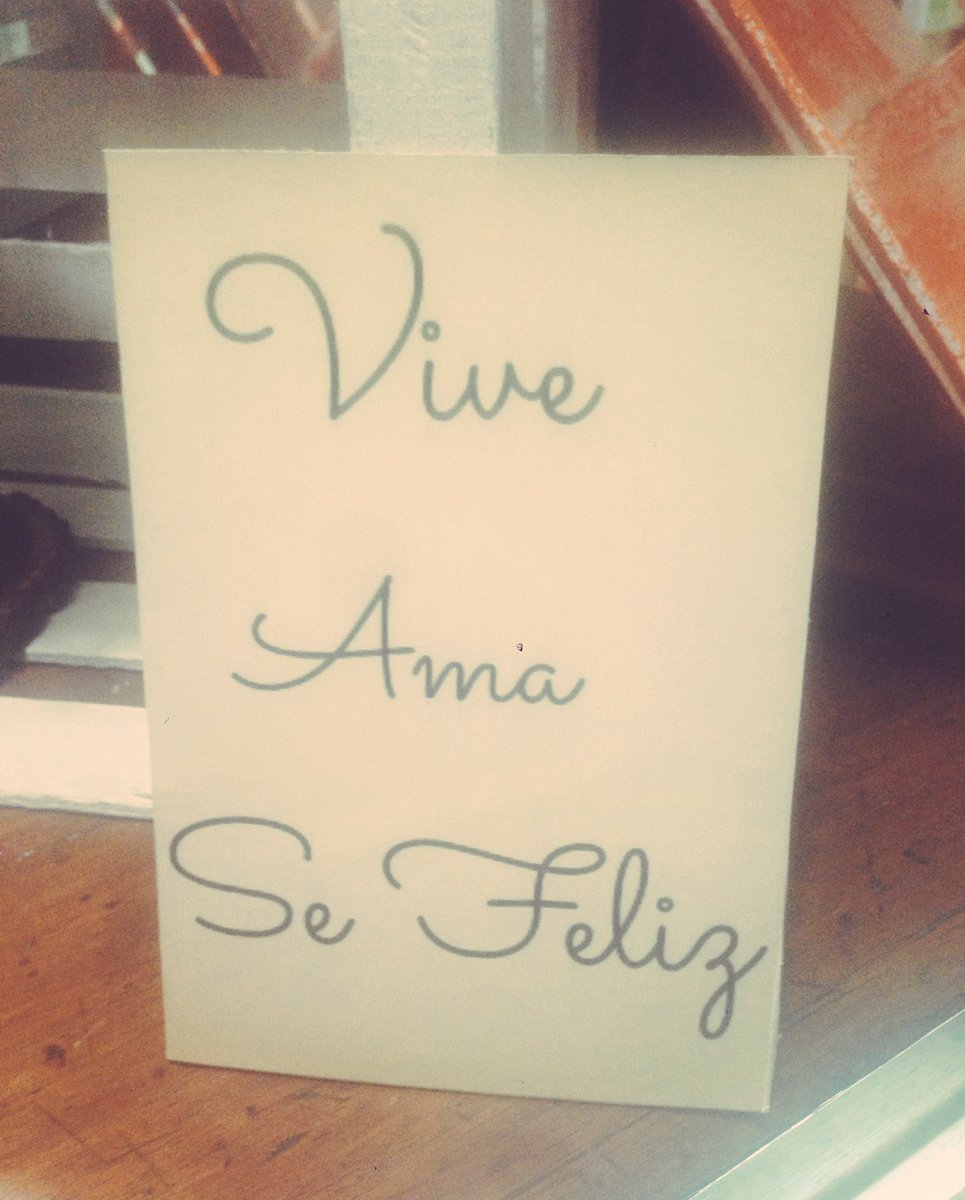 Vive
Ama
Se Feliz